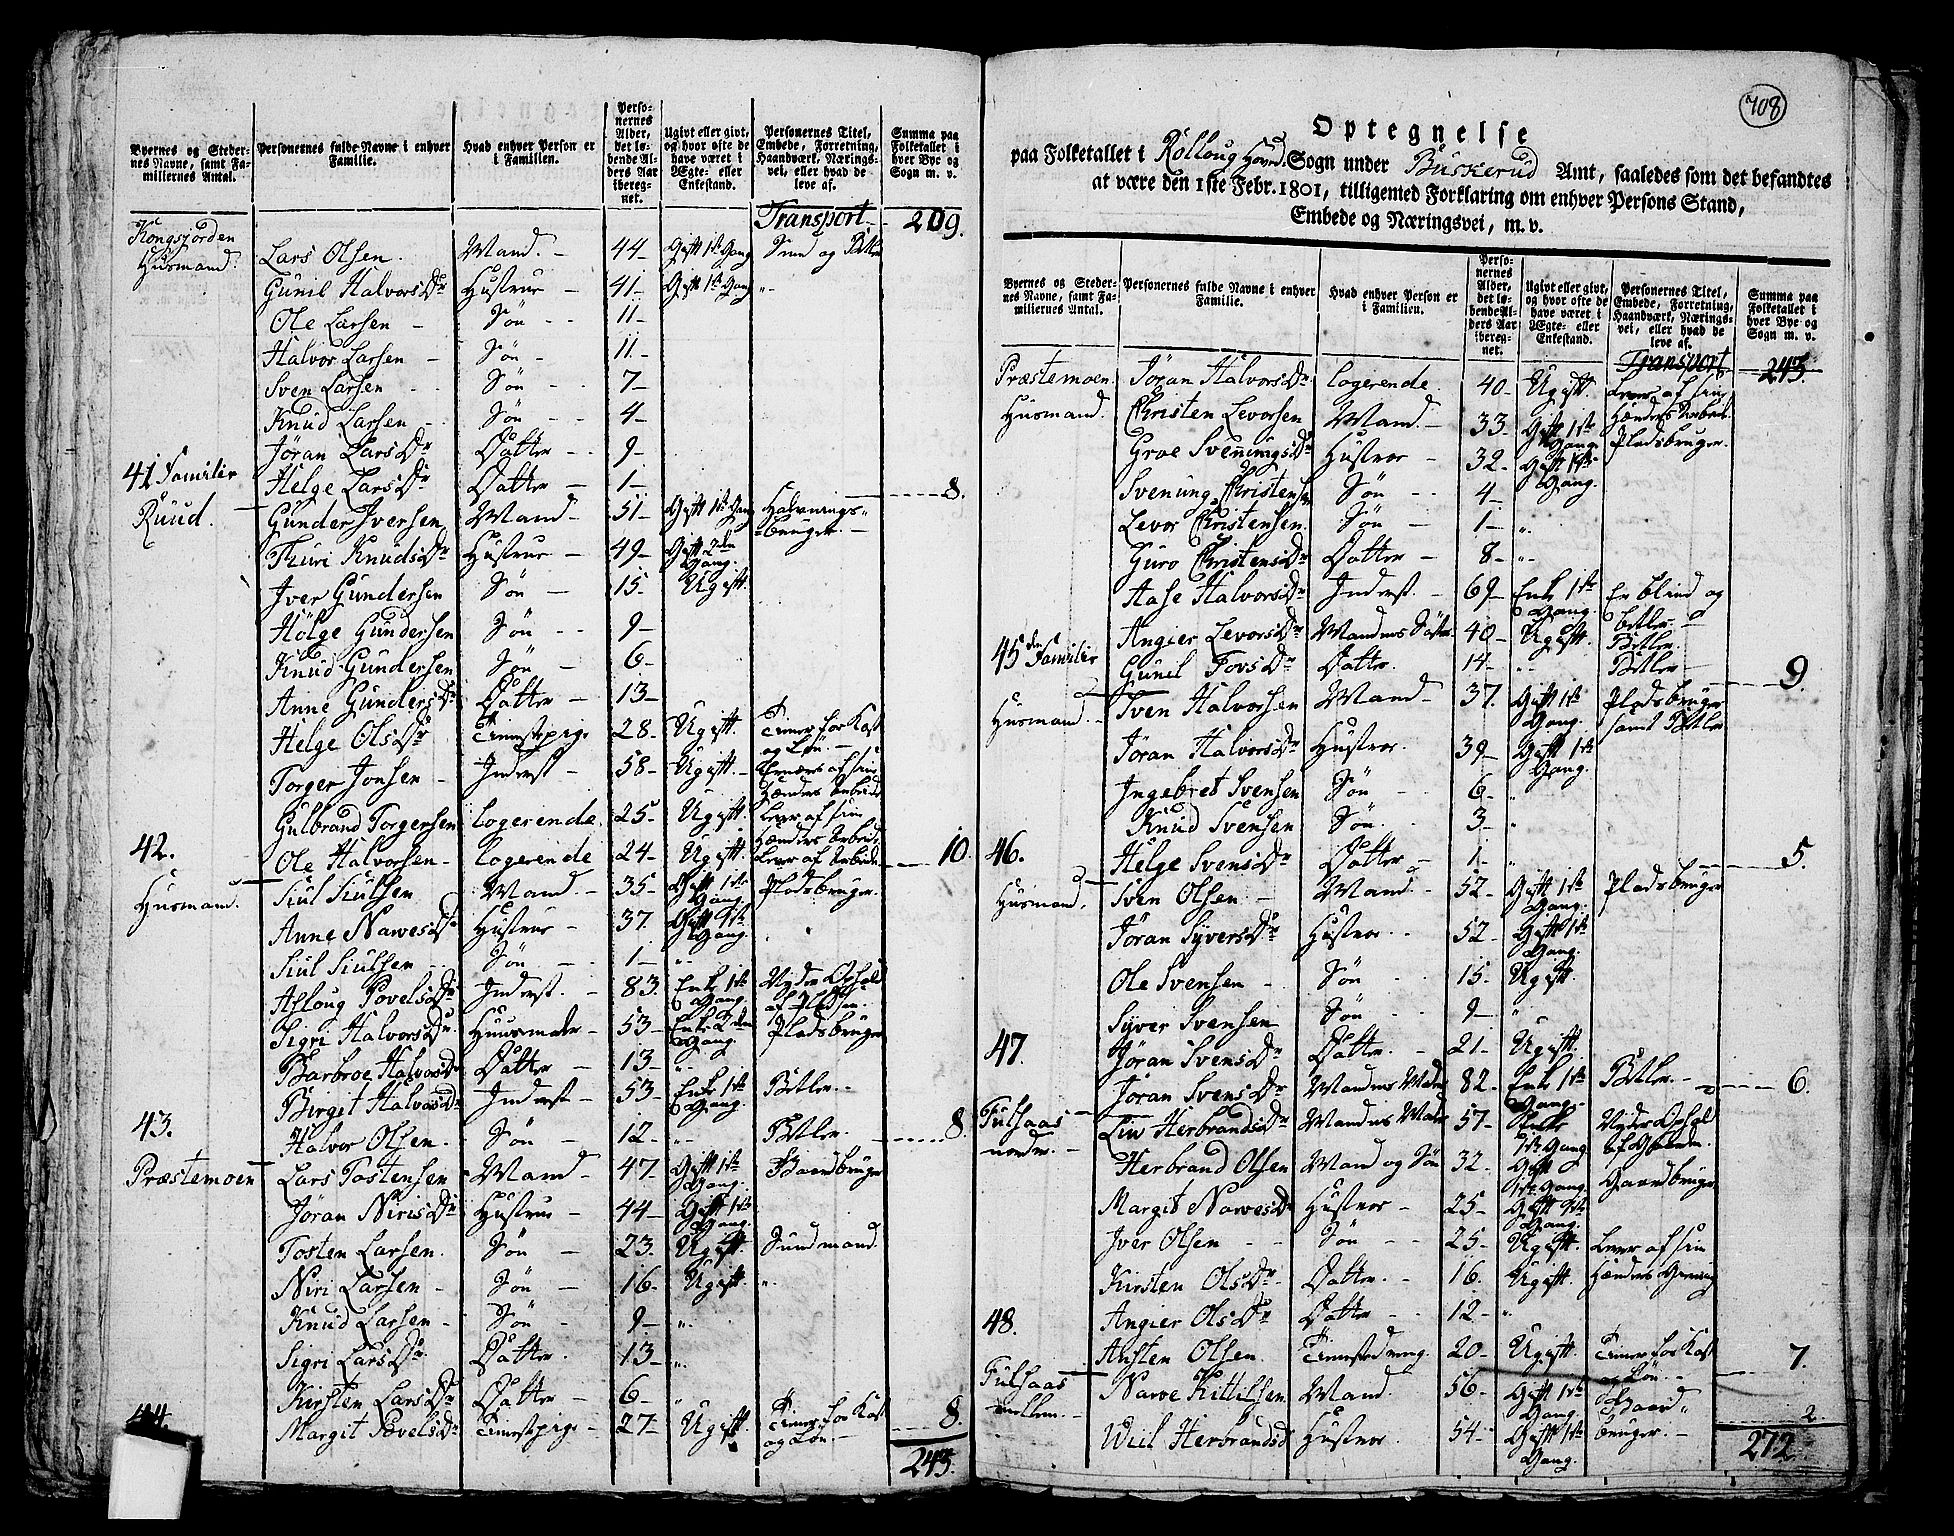 Byernes og Steder-
nes Navne, samt Fa-
miliernes Antal.
Personernes fulde Navne i enhver
Familie.
Hvad enhver Person er
i Familien.
Perso-
nernes
Alder,
det lø-
bende Al-
ders Aar
ibereg-
net.
Ugivt eller givt,
og hvor ofte de
have været i
Ægte- eller
Enkestand.
Personernes Titel,
Embede, Forretning,
Haandværk, Nærings-
vei, eller hvad de
leve af.
Summa paa
Folketallet i
hver Bye og
Sogn m. v.
Transport 209.
Kongsjorden
Husmand. Lars Olsen. Mand. 44 Gift 1ste Gang
Gunil Halvorsdr Hustrue 41 Gift 1ste Gang
Ole Larsen Søn 11
Halvor Larsen Søn 11
Sven Larsen Søn 7
Knud Larsen Søn 4
Jøran Larsdr Datter 9
41 Familier Helge Larsdr Datter 1 8.
Ruud. Gunder Iversen Mand 51 Gift 1ste Gang
bruger.
Thuri Knudsdr Hustrue 49 Gift 2den Gang.
Iver Gundersen Søn 15 Ugift.
Holge Gundersen Søn 9
Knud Gundersen Søn 6
Anne Gundersdr Datter 13
Helge Olsdr Tienestepige 28 Ugift. Tiener for Kost
og Løn.
Torger Jonsen Inderst 58 Ugift. Ernæres af sin
Hænders Arbeide
Gulbrand Torgersen logerende 25 Ugift. Lever af sin
Hænders Arbeide
42. Ole Halvorsen logerende 24 Ugift. Lever af Arbeide 10.
Husmand. Siul Siulsen Mand 35 Gift 1ste Gang. Pladsbruger.
Anne Narvesdr Hustrue 37. Gift 1ste Gang.
Siul Siulsen Søn 1
Asloug Povelsdr Inderst. 83. Enke 1ste Gang. Nyder Ophold
Sigri Halvorsdr Huusmoder 53 Enke 2den Gang. Pladsbruger
Barbroe Halvorsdr Datter 13
Birgit Halvorsdr Inderst 53 Enke 1ste Gang. Betler.
43. Halvor Olsen. Søn 12 Betler. 8.
Præstemoen Lars Tostensen Mand 47 Gift 1ste Gang. Gaardbruger
Jøran Nirisdr Hustrue 44 Gift 1ste Gang.
Tosten Larsen. Søn 23. Ugift.
Niri Larsen Søn 16 Ugift.
Knud Larsen Søn 9
Sigri Larsdr Datter. 13
Kirsten Larsdr Datter 6
44 Margit Povelsdr Tienestepige 27 Ugift. Tiener for Kost
og Løn. 8.
243.
708
Optegnelse
paa Folketallet i Rolloug Hoved Sogn under Buskerud Amt, saaledes som det befandtes
at være den 1ste Febr. 1801, tilligemed Forklaring om enhver Persons Stand,
Embede og Næringsvei, m. v.
Byernes og Steder-
nes Navne, samt Fa-
miliernes Antal.
Personernes fulde Navne i enhver
Familie.
Hvad enhver Person er
i Familien.
Perso-
nernes
Alder,
det lø-
bende Al-
ders Aar
ibereg-
net.
Ugivt eller givt,
og hvor ofte de
have været i
Ægte- eller
Enkestand.
Personernes Titel,
Embede, Forretning,
Haandværk, Nærings-
vei, eller hvad de
leve af.
Summa paa
Folketallet i
hver Bye og
Sogn m. v.
Transport 243.
Præstemoen Jøran Halvorsdr logerende. 40 Ugift. Lever af sin
Hænders Arbeid
Husmand. Christen Levorsen Mand. 33 Gift 1ste Gang. Pladsbruger.
Groe Svenungsdr Hustroe 32 Gift 1ste Gang.
Svenung Christensen Søn 4
Levor Christensen. Søn 1
Guro Christensdr Datter 8
Aase Halvorsdr Inderst. 69 Enke 1ste Gang. Er blind og
betler.
Angier Levorsdr Mandens Søster 40 Ugift. Betler.
45de Familier Gunil Tovsdr Datter. 14 Betler 9.
Husmand. Sven Halvorsen Mand 37. Gift 1ste Gang. Pladsbruger
samt Betler
Jøran Halvorsdr Hustroe. 39 Gift 1ste Gang.
Ingebret Svensen Søn 6
Knud Svensen Søn. 3
46. Helge Svensdr Datter 1 5.
Husmand. Sven Olsen Mand. 52 Gift 1ste Gang. Pladsbruger
Jøran Syversdr Hustroe 52 Gift 1ste Gang.
Ole Svensen Søn 15 Ugift.
Syver Svensen Søn 9
47. Jøran Svensdr Datter. 21 Ugift.
Jøran Svensdr Mandens Moder 82 Enke 1ste Gang. Betler. 6.
Fulsaas
nordre. Liv Herbrandsdr Mandens Moder 57 Enke 1ste Gang Nyder Ophold
af Gaarden.
Herbrand Olsen Mand og Søn 32. Gift 1ste Gang. Gaardbruger
Margit Narvesdr Hustroe 25 Gift 1ste Gang.
Iver Olsen Søn 25 Ugift. Lever af sin
Hænders Gierning
Kirsten Olsdr Datter. 16. Ugift.
Angier Olsdr Datter 12
48. Austen Olsen. Tienestedreng. 20 Ugift. Tiener for Kost
og Løn. 7.
Fulsaas
mellem. Narve Kittilsen Mand. 56 Gift 1ste Gang. Gaard
bruger. 2.
Wiil Herbrandsd Hustroe 54 Gift 1ste Gang.
272.